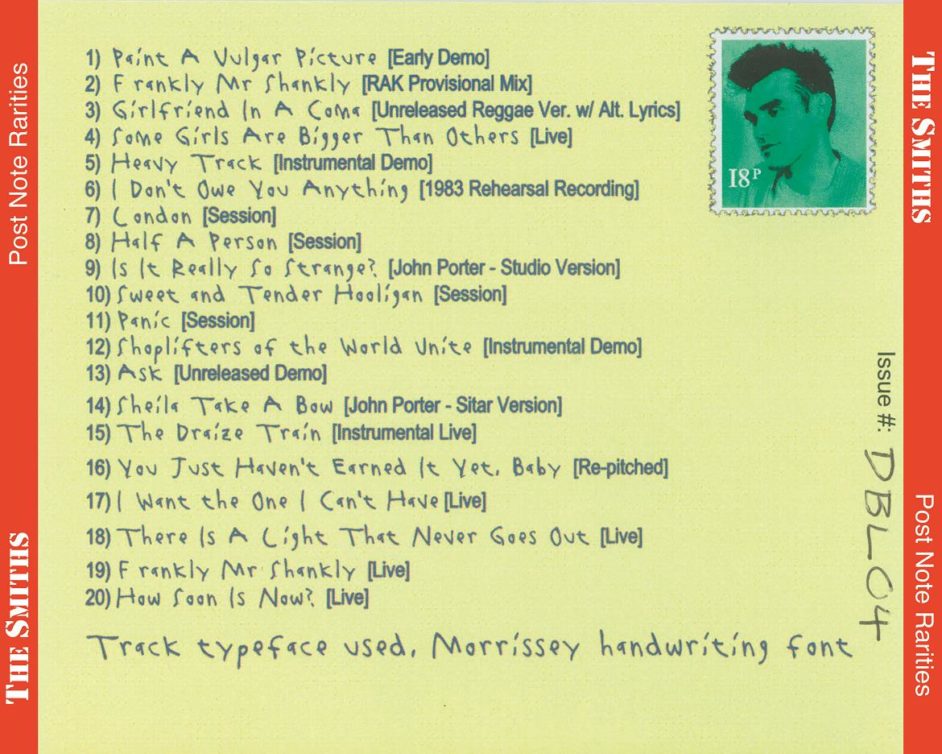 1) Paint A Vulgar Picture [Early Demo]
2) Frankly Mr Shankly [RAK Provisional Mix]
3) Girlfriend In A Coma [Unreleased Reggae Ver. w/ Alt. Lyrics]
4) Some Girls Are Bigger Than Others [Live]
5) Heavy Track [Instrumental Demo]
6) I Don't Owe You Anything [1983 Rehearsal Recording]
7) London [Session]
8) Half A Person [Session]
9) Is It Really So Strange? [John Porter - Studio Version]
10) Sweet and Tender Hooligan [Session]
11) Panic [Session]
12) Shoplifters of the World Unite [Instrumental Demo]
13) Ask [Unreleased Demo]
14) Sheila Take A Bow [John Porter - Sitar Version]
15) The Draize Train [Instrumental Live]
16) You Just Haven't Earned It Yet, Baby [Re-pitched]
17) I Want the One I Can't Have [Live]
18) There Is A Light That Never Goes Out [Live]
19) Frankly Mr Shankly [Live]
20) How Soon Is Now? [Live]
Track typeface used, Morrissey handwriting font
18P
Issue #: DBL04
Post Note Rarities
THE SMITHS
THE SMITHS
Post Note Rarities